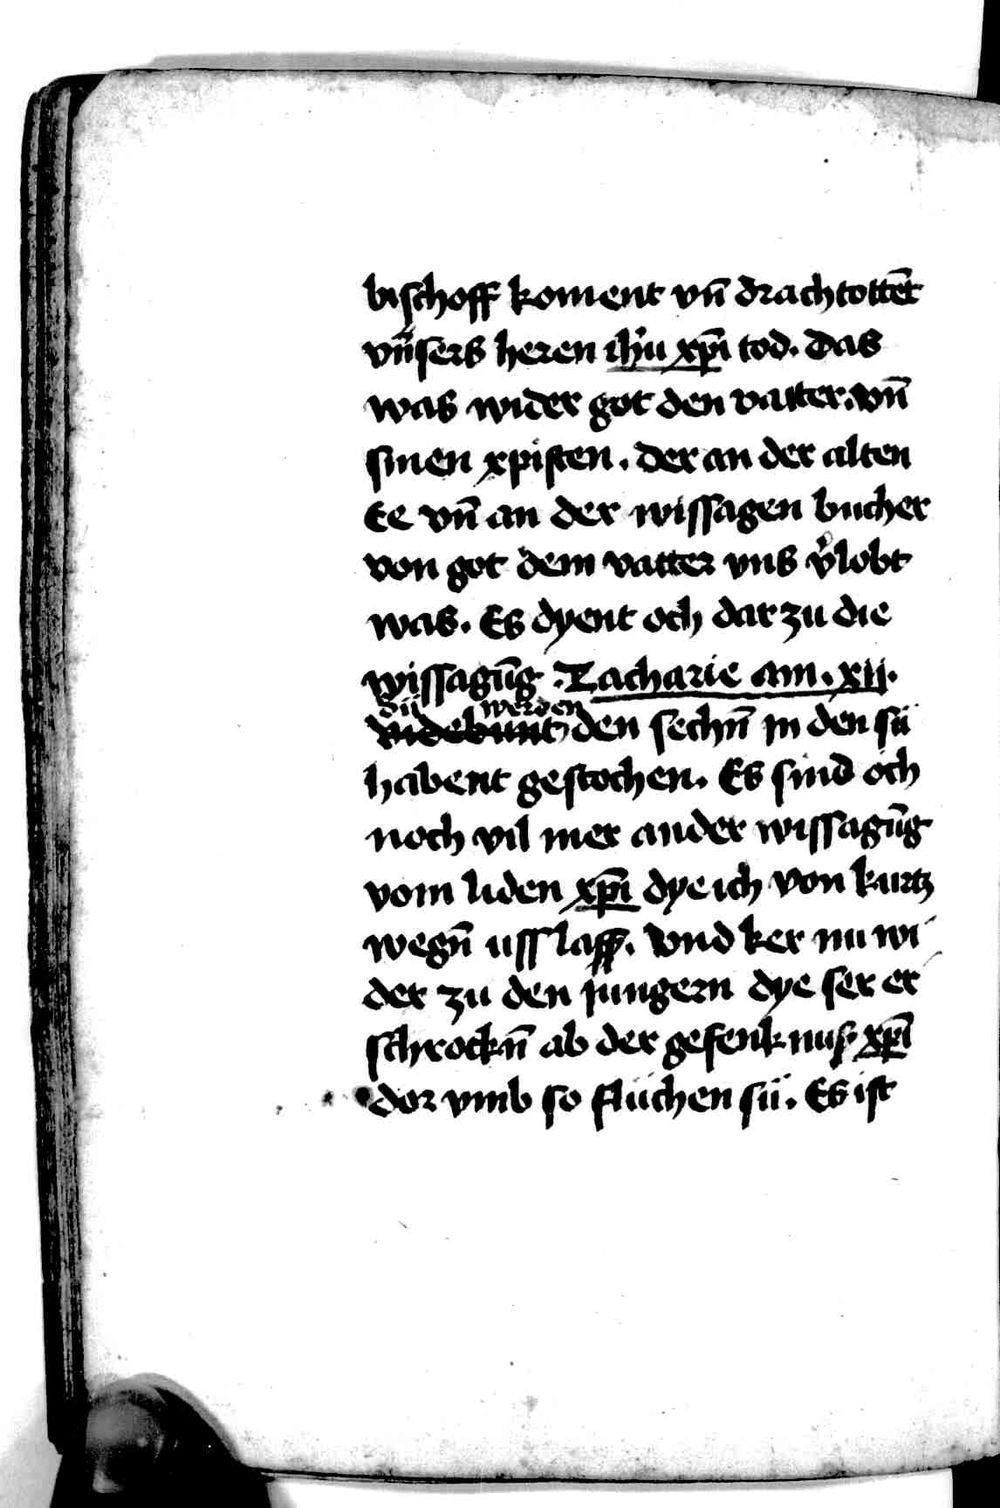 bischoff koment vn̄ drachtottēt
vn̄sers heren ihū xp̄i tod. Das
was wider got den vatter. vn̄
sinen xpisten. der an der alten
Ee vn̄ an der wissagen bucher
von got dem vatter vns v̓lobt
was. Es dyent och dar zu die
wissagūg. Zacharie am. xij.
dü werden
videbunt den sechn̄ jn den sü
habent gestochen. Es sind och
noch vil mer ander wissagūg
vom liden xp̄i dye ich von kurtz
wegn̄ uss lass. Vnd ker nu wi
der zu den jungern dye ser er
schrockn̄ ab der gefenknus xp̄i
dor vmb so flüchen sü. Es ist